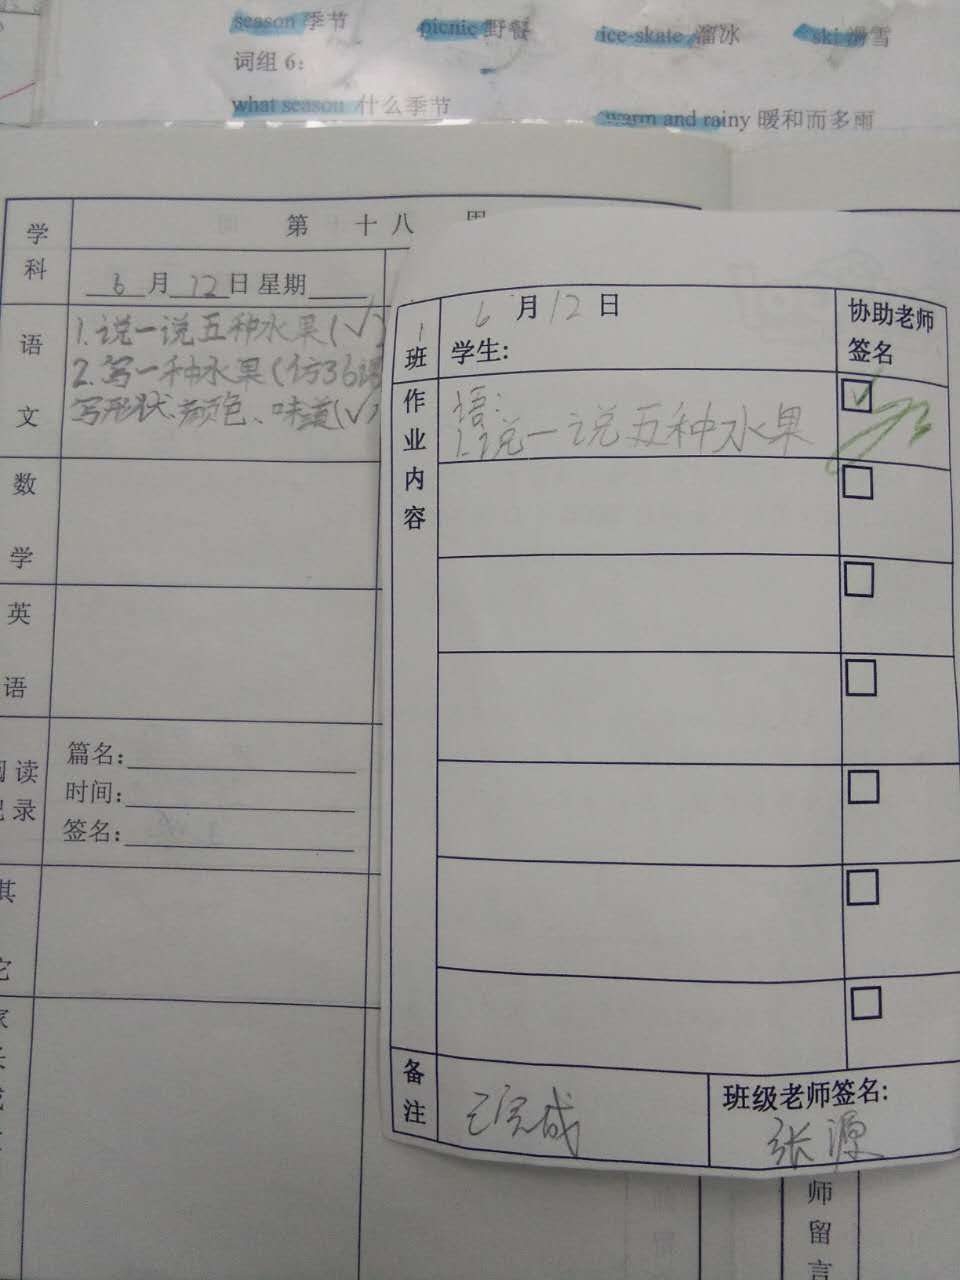 season 季节 picnic 野餐 ice-skate 溜冰 ski 滑雪
词组 6：
what season 什么季节 warm and rainy 暖和而多雨
学科 第十八周
6月12日 星期
语文
1.说一说五种水果(√)
2.写一种水果(仿36课
写形状、颜色、味道(√)
数学
英语
阅读记录
篇名：
时间：
签名：
其它
班
6月12日
学生：
协助老师
签名
作业内容
语：
1.说一说五种水果
备注
已完成
班级老师签名：
张源
师留言